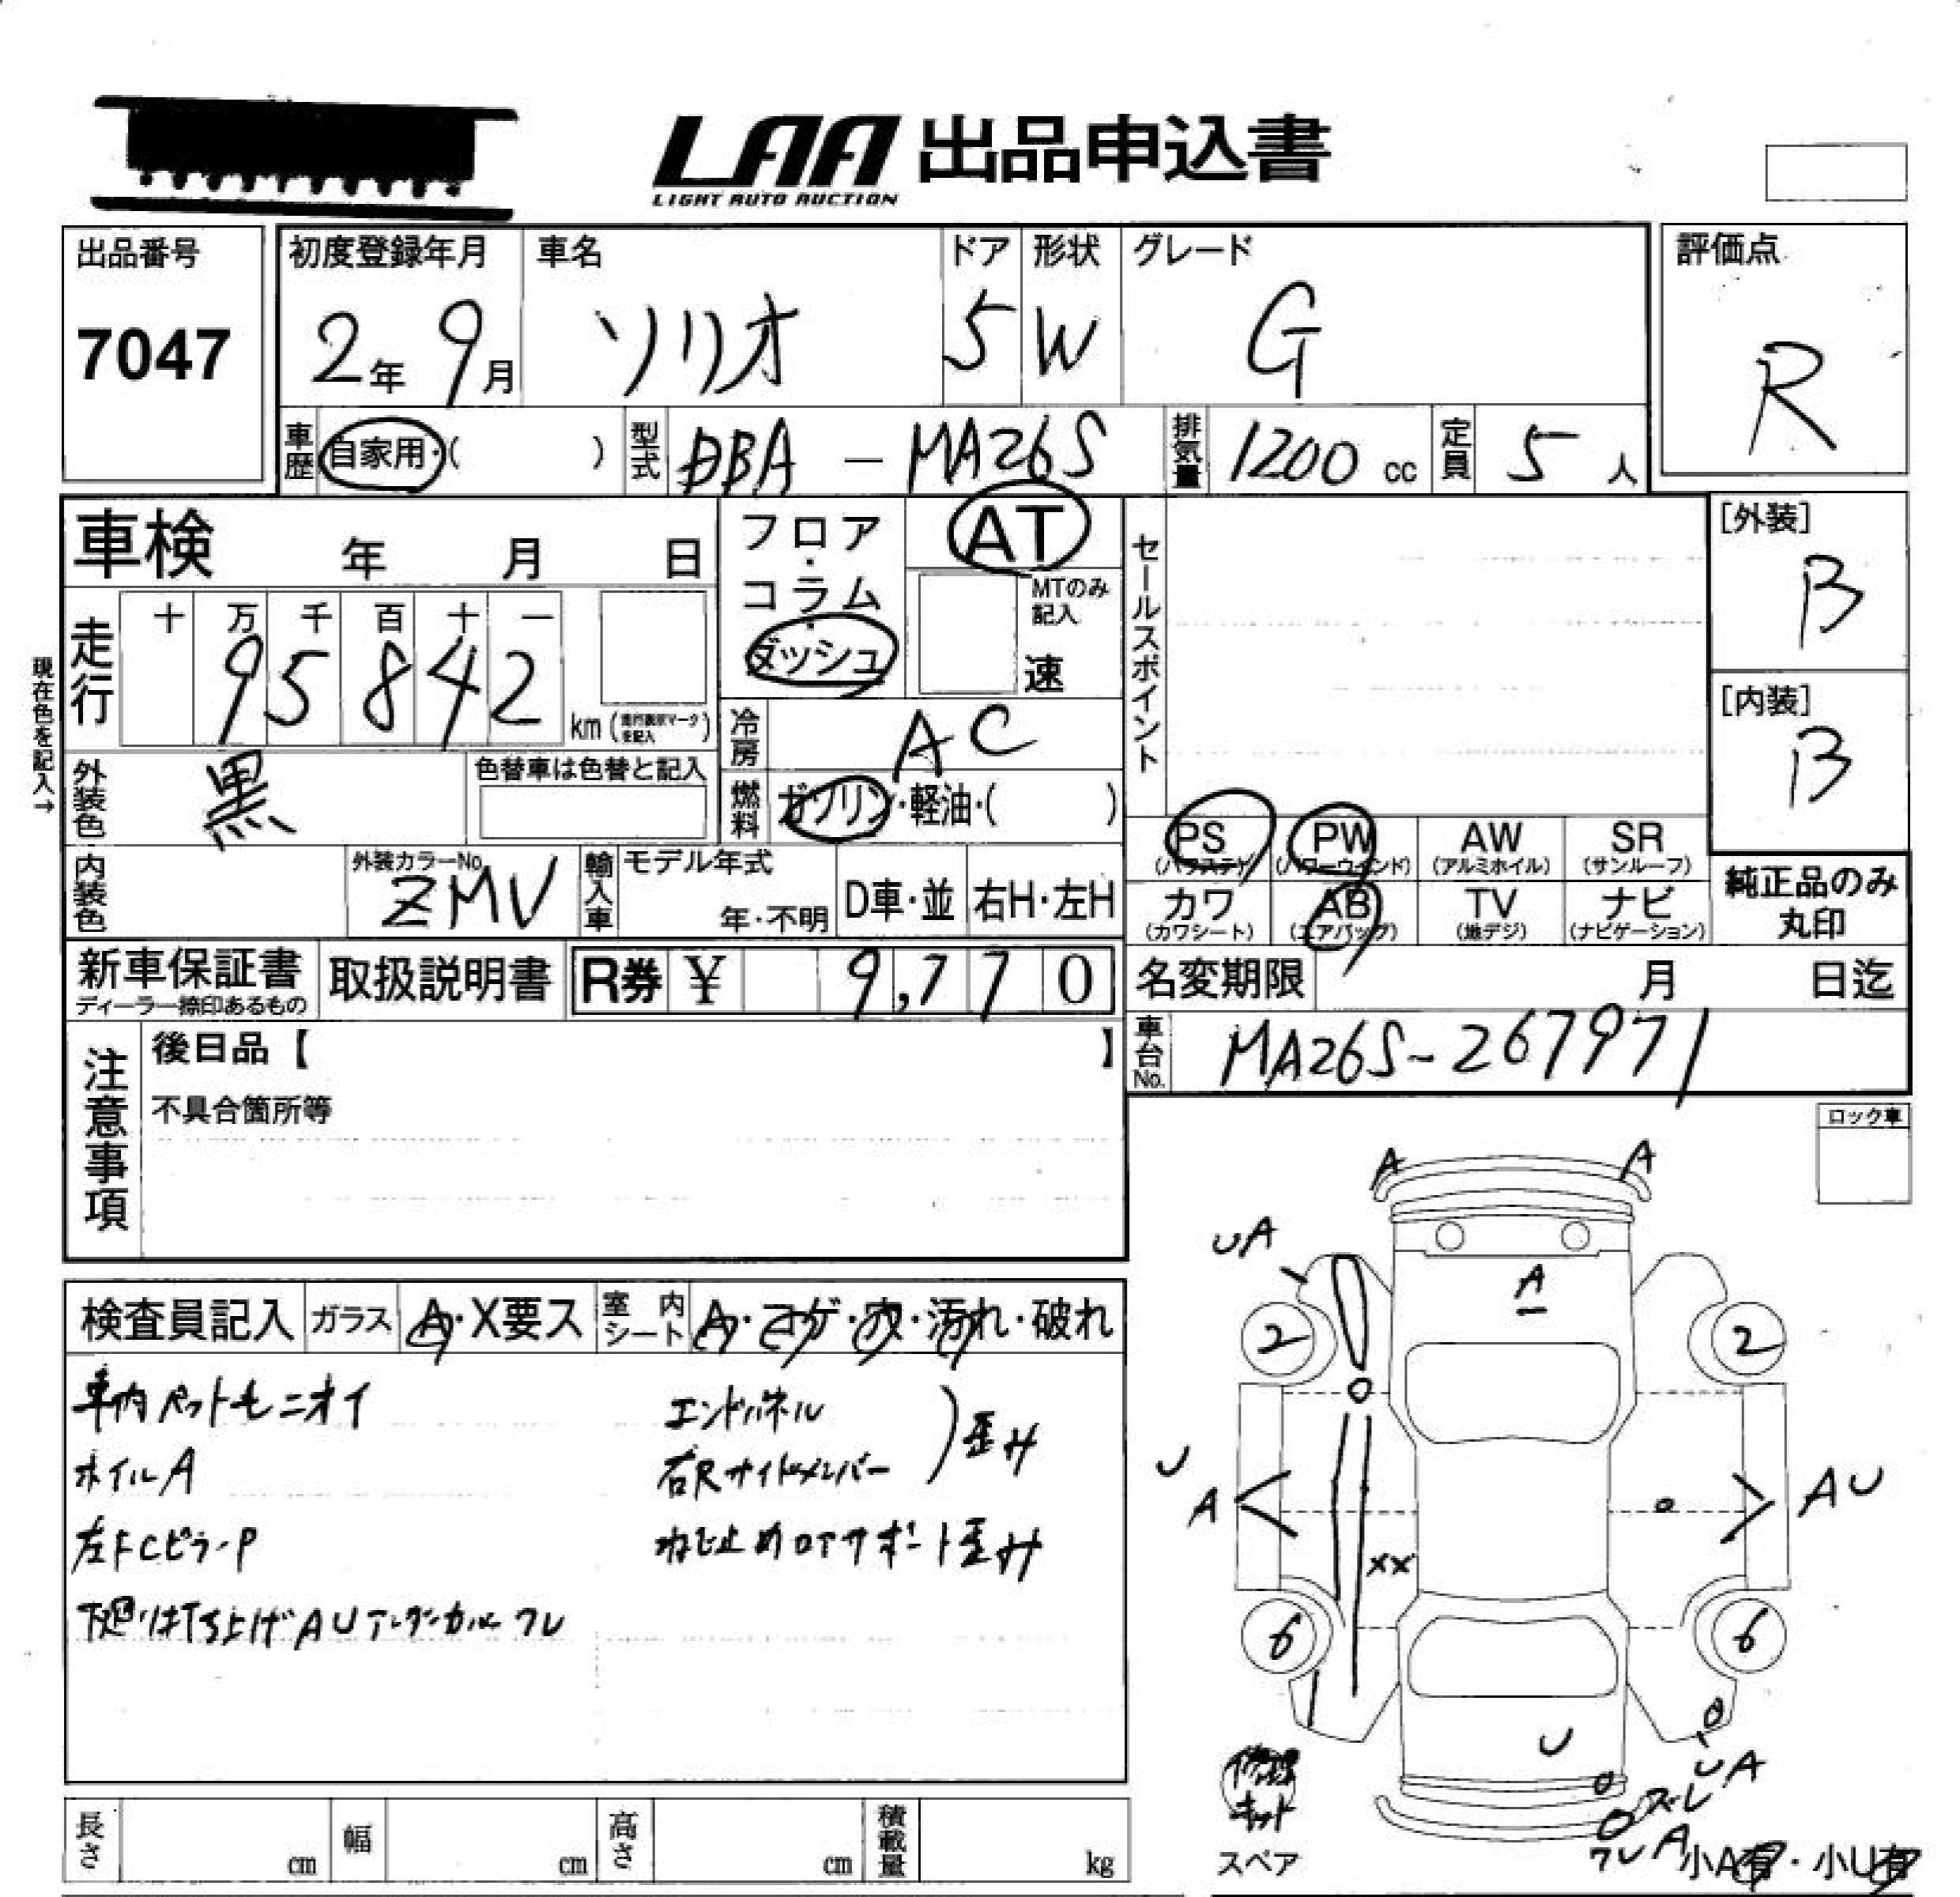 LAA 出品申込書
LIGHT AUTO AUCTION
出品番号
7047
初度登録年月
2年 9月
車名
ソリオ
ドア
5
形状
W
グレード
G
評価点
R
車歴
自家用・( )
型式
DBA - MA26S
排気量
1200 cc
定員
5 人
車検 年 月 日
フロア・コラム・ダッシュ
AT
MTのみ記入
速
セールスポイント
[外装]
B
[内装]
B
現在色を記入→
走行
十 万 千 百 十 一
95842
km (走行表示マークを記入)
冷房
AC
外装色
黒
色替車は色替と記入
燃料
ガソリン・軽油・( )
PS
(パワステ)
PW
(パワーウインド)
AW
(アルミホイル)
SR
(サンルーフ)
内装色
外装カラーNo.
ZMV
輸入車
モデル年式
年・不明
D車・並
右H・左H
カワ
(カワシート)
AB
(エアバッグ)
TV
(地デジ)
ナビ
(ナビゲーション)
純正品のみ
丸印
新車保証書
ディーラー捺印あるもの
取扱説明書
R券 ¥ 9,770
名変期限 月 日迄
車台No.
MA26S-267971
注意事項
後日品【 】
不具合箇所等
ロック車
検査員記入
ガラス
A・X要ス
室内シート
A・コゲ・穴・汚れ・破れ
車内ペット毛ニオイ
ホイルA
左FCピラーP
エンドパネル
右Rサイドメンバー
歪み
ねじ止めロアサポート歪み
A A
UA
A
2 2
U
A
AU
XX
6 6
U
UA
ズレ
A
小A有・小U有
修理キット
スペア
長さ cm
幅 cm
高さ cm
積載量 kg